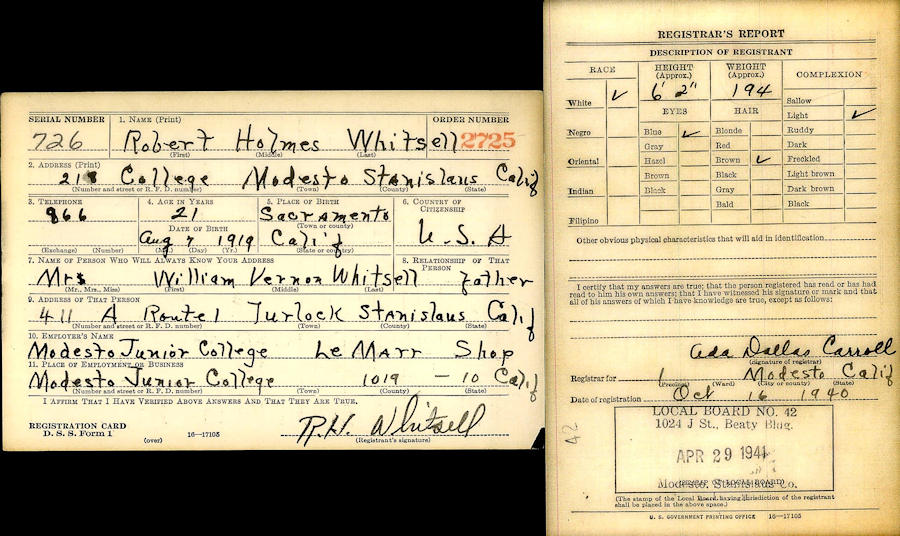 SERIAL NUMBER 1. NAME (Print) ORDER NUMBER
726 Robert Holmes Whitsell 2725
(First) (Middle) (Last)
2. ADDRESS (Print)
218 College Modesto Stanislaus Calif
(Number and street or R. F. D. number) (Town) (County) (State)
3. TELEPHONE 4. AGE IN YEARS 5. PLACE OF BIRTH 6. COUNTRY OF CITIZENSHIP
866 21 Sacramento
DATE OF BIRTH (Town or county)
Aug 7 1919 Calif U.S.A
(Exchange) (Number) (Mo.) (Day) (Yr.) (State or country)
7. NAME OF PERSON WHO WILL ALWAYS KNOW YOUR ADDRESS 8. RELATIONSHIP OF THAT PERSON
Mrs William Vernon Whitsell father
(Mr., Mrs., Miss) (First) (Middle) (Last)
9. ADDRESS OF THAT PERSON
411 A Route 1 Turlock Stanislaus Calif
(Number and street or R. F. D. number) (Town) (County) (State)
10. EMPLOYER'S NAME
Modesto Junior College Le Marr Shop
11. PLACE OF EMPLOYMENT OR BUSINESS
Modesto Junior College 1019 - 10 Calif
(Number and street or R. F. D. number) (Town) (County) (State)
I AFFIRM THAT I HAVE VERIFIED ABOVE ANSWERS AND THAT THEY ARE TRUE.
REGISTRATION CARD
D. S. S. Form 1 (over) 16-17105
R.H. Whitsell
(Registrant's signature)
REGISTRAR'S REPORT
DESCRIPTION OF REGISTRANT
RACE HEIGHT (Approx.) WEIGHT (Approx.) COMPLEXION
White ✓ 6' 2" 194 Sallow
EYES HAIR Light ✓
Negro Blue ✓ Blonde Ruddy
Gray Red Dark
Oriental Hazel Brown ✓ Freckled
Brown Black Light brown
Indian Black Gray Dark brown
Bald Black
Filipino
Other obvious physical characteristics that will aid in identification
I certify that my answers are true; that the person registered has read or has had
read to him his own answers; that I have witnessed his signature or mark and that
all of his answers of which I have knowledge are true, except as follows:
Ada Dallas Carroll
(Signature of registrar)
Registrar for 1 Modesto Calif
(Precinct) (Ward) (City or county) (State)
Date of registration Oct 16 1940
LOCAL BOARD NO. 42
1024 J St., Beaty Bldg.
42
APR 29 1941
Modesto, Stanislaus Co.
(STAMP OF LOCAL BOARD)
(The stamp of the Local Board having jurisdiction of the registrant
shall be placed in the above space.)
U. S. GOVERNMENT PRINTING OFFICE 16-17105